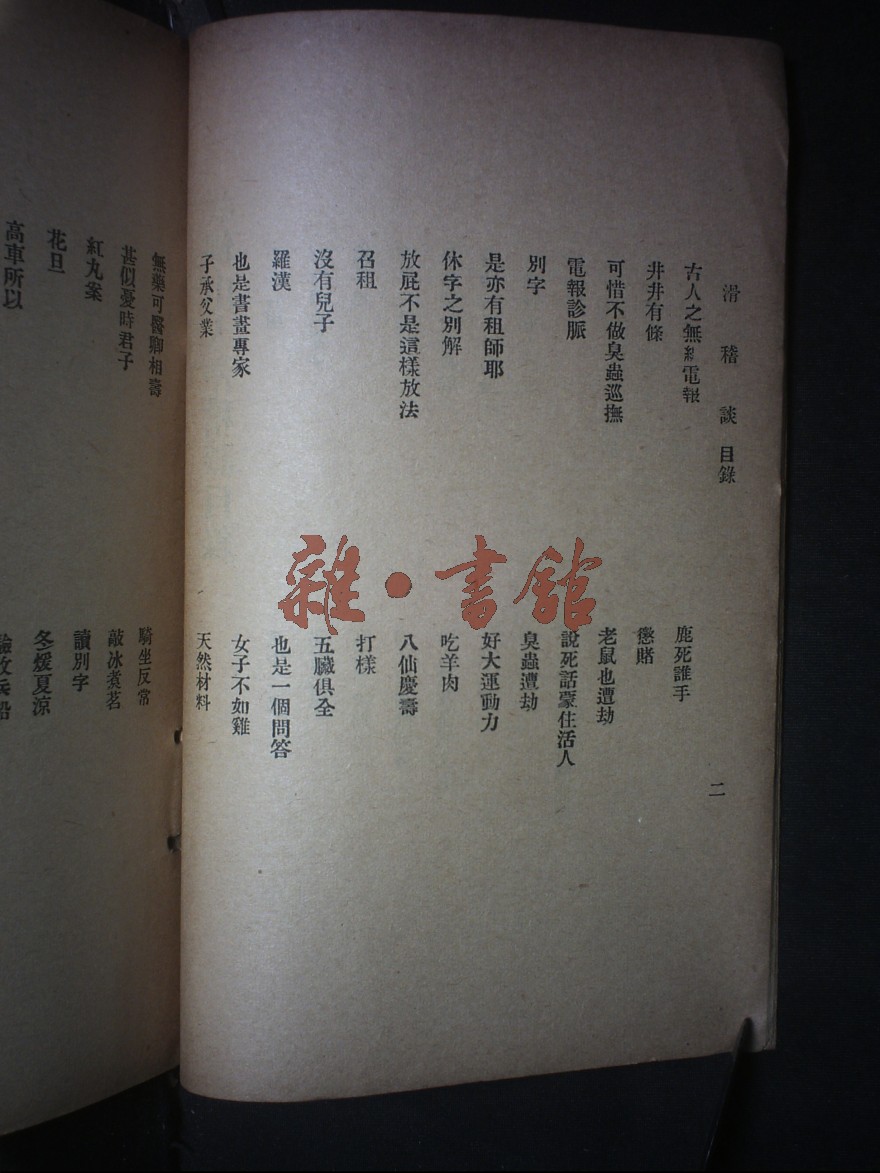 滑稽談目錄
二
古人之無線電報
井井有條
可惜不做臭蟲巡撫
電報診脈
別字
是亦有租師耶
休字之別解
放屁不是這樣放法
召租
沒有兒子
羅漢
也是書畫專家
子承父業
鹿死誰手
懲賭
老鼠也遭劫
說死話蒙住活人
臭蟲遭劫
好大運動力
吃羊肉
八仙慶壽
打樣
五臟俱全
也是一個問答
女子不如雞
天然材料
無藥可醫卿相壽
甚似憂時君子
紅丸案
花旦
高車所以
騎坐反常
敲冰煮茗
讀別字
冬煖夏涼
雜·書館